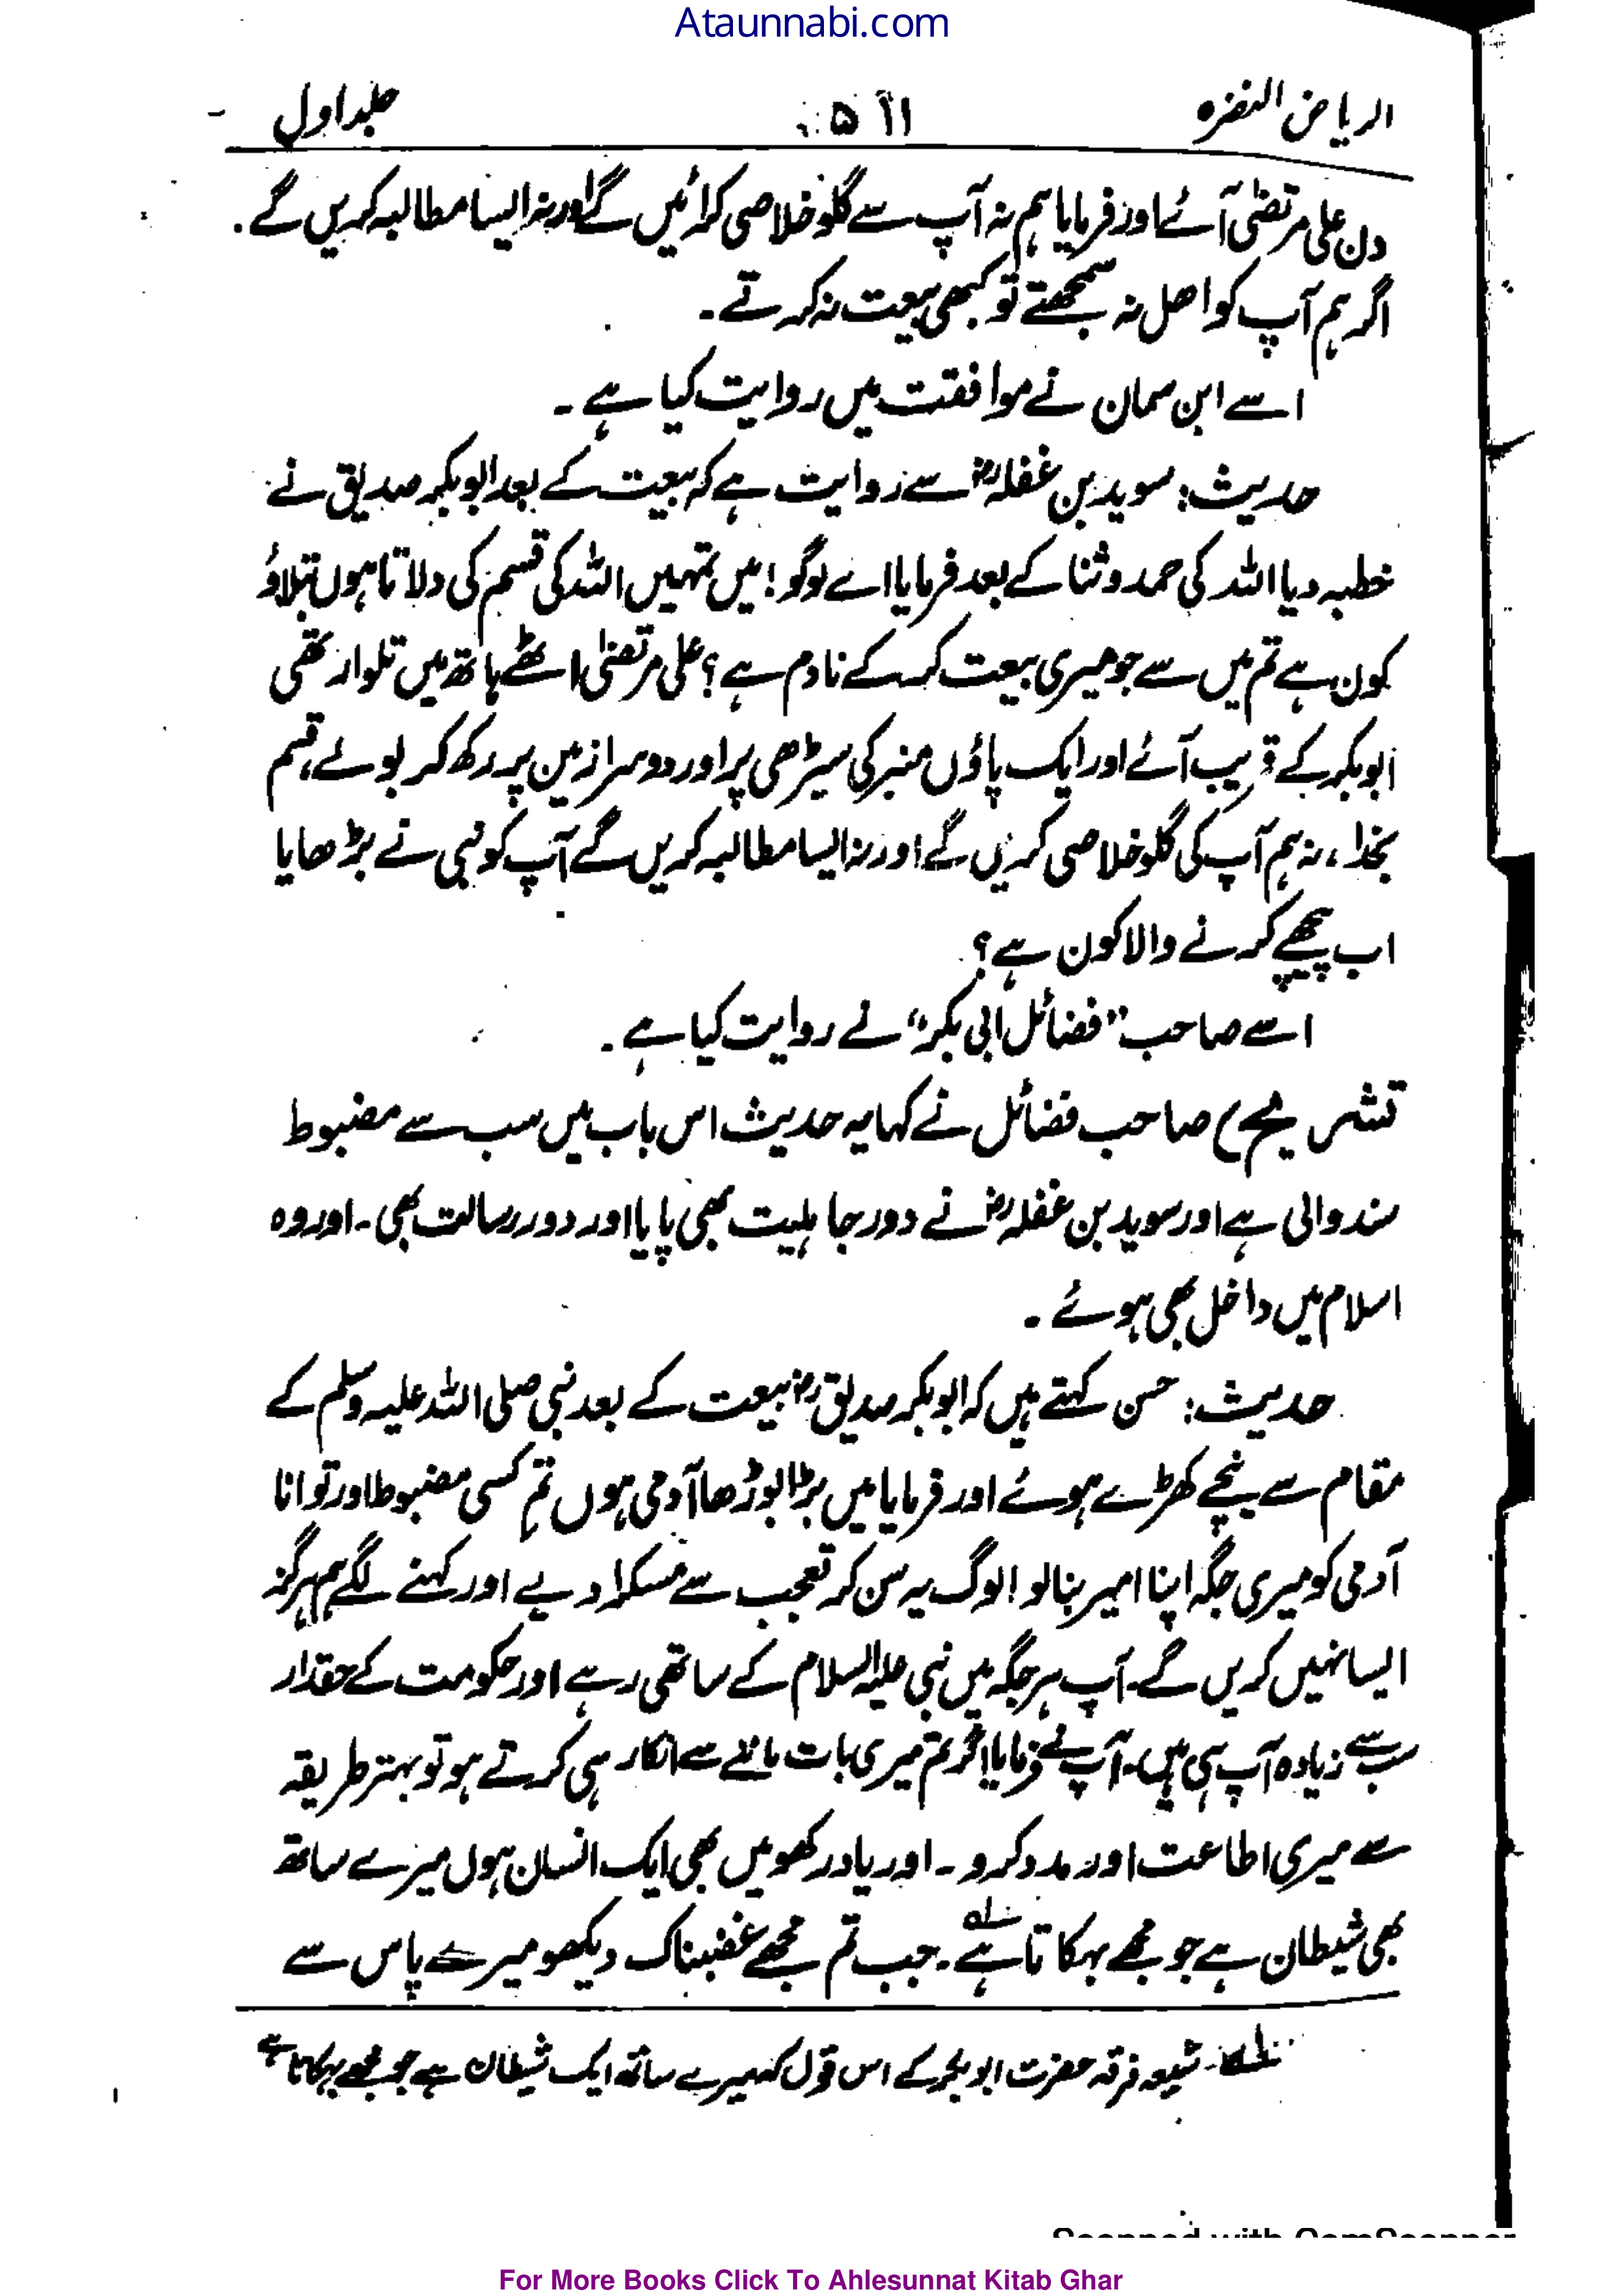 Ataunnabi.com
الریاض النضرہ ۵۱۱ جلد اول
دن علی مرتضیٰ آئے اور فرمایا ہم نہ آپ سے گلو خلاصی کرائیں گے اور نہ ایسا مطالبہ کریں گے۔
اگر ہم آپ کو اصل نہ سمجھتے تو کبھی بیعت نہ کرتے۔
اسے ابن سمان نے موافقت میں روایت کیا ہے۔
حدیث: سوید بن غفلہؓ سے روایت ہے کہ بیعت کے بعد ابوبکر صدیق نے
خطبہ دیا اللہ کی حمد و ثنا کے بعد فرمایا اے لوگو! میں تمہیں اللہ کی قسم کی دلاتا ہوں بتلاؤ
کون ہے تم میں سے جو میری بیعت کر کے نادم ہے؟ علی مرتضیٰ اٹھے ہاتھ میں تلوار تھی
ابوبکر کے قریب آئے اور ایک پاؤں منبر کی سیڑھی پر اور دوسرا زمین پر رکھ کر بولے، قسم
بخدا، نہ ہم آپ کی گلو خلاصی کریں گے اور نہ ایسا مطالبہ کریں گے آپ کو نبی نے بڑھایا
اب پیچھے کرنے والا کون ہے؟
اسے صاحب "فضائل ابی بکر" نے روایت کیا ہے۔
تشریح) صاحب فضائل نے کہا یہ حدیث اس باب میں سب سے مضبوط
سند والی ہے اور سوید بن غفلہؓ نے دور جاہلیت بھی پایا اور دور رسالت بھی۔ اور وہ
اسلام میں داخل بھی ہوئے۔
حدیث: حسن کہتے ہیں کہ ابوبکر صدیقؓ بیعت کے بعد نبی صلی اللہ علیہ وسلم کے
مقام سے نیچے کھڑے ہوئے اور فرمایا میں بڑا بوڑھا آدمی ہوں تم کسی مضبوط اور توانا
آدمی کو میری جگہ اپنا امیر بنا لو! لوگ یہ سن کر تعجب سے مسکرا دیے اور کہنے لگے ہم ہرگز
ایسا نہیں کریں گے۔ آپ ہر جگہ میں نبی علیہ السلام کے ساتھی رہے اور حکومت کے حقدار
سب سے زیادہ آپ ہی ہیں۔ آپ نے فرمایا اگر تم میری بات ماننے سے انکار ہی کرتے ہو تو بہتر طریقہ
سے میری اطاعت اور مدد کرو۔ اور یاد رکھو میں بھی ایک انسان ہوں میرے ساتھ
بھی شیطان ہے جو مجھے بہکاتا ہے۔ جب تم مجھے غضبناک دیکھو میرے پاس سے
شیعہ فرقہ حضرت ابوبکر کے اس قول کہ میرے ساتھ ایک شیطان ہے جو مجھے بہکاتا ہے
Scanned with CamScanner
For More Books Click To Ahlesunnat Kitab Ghar